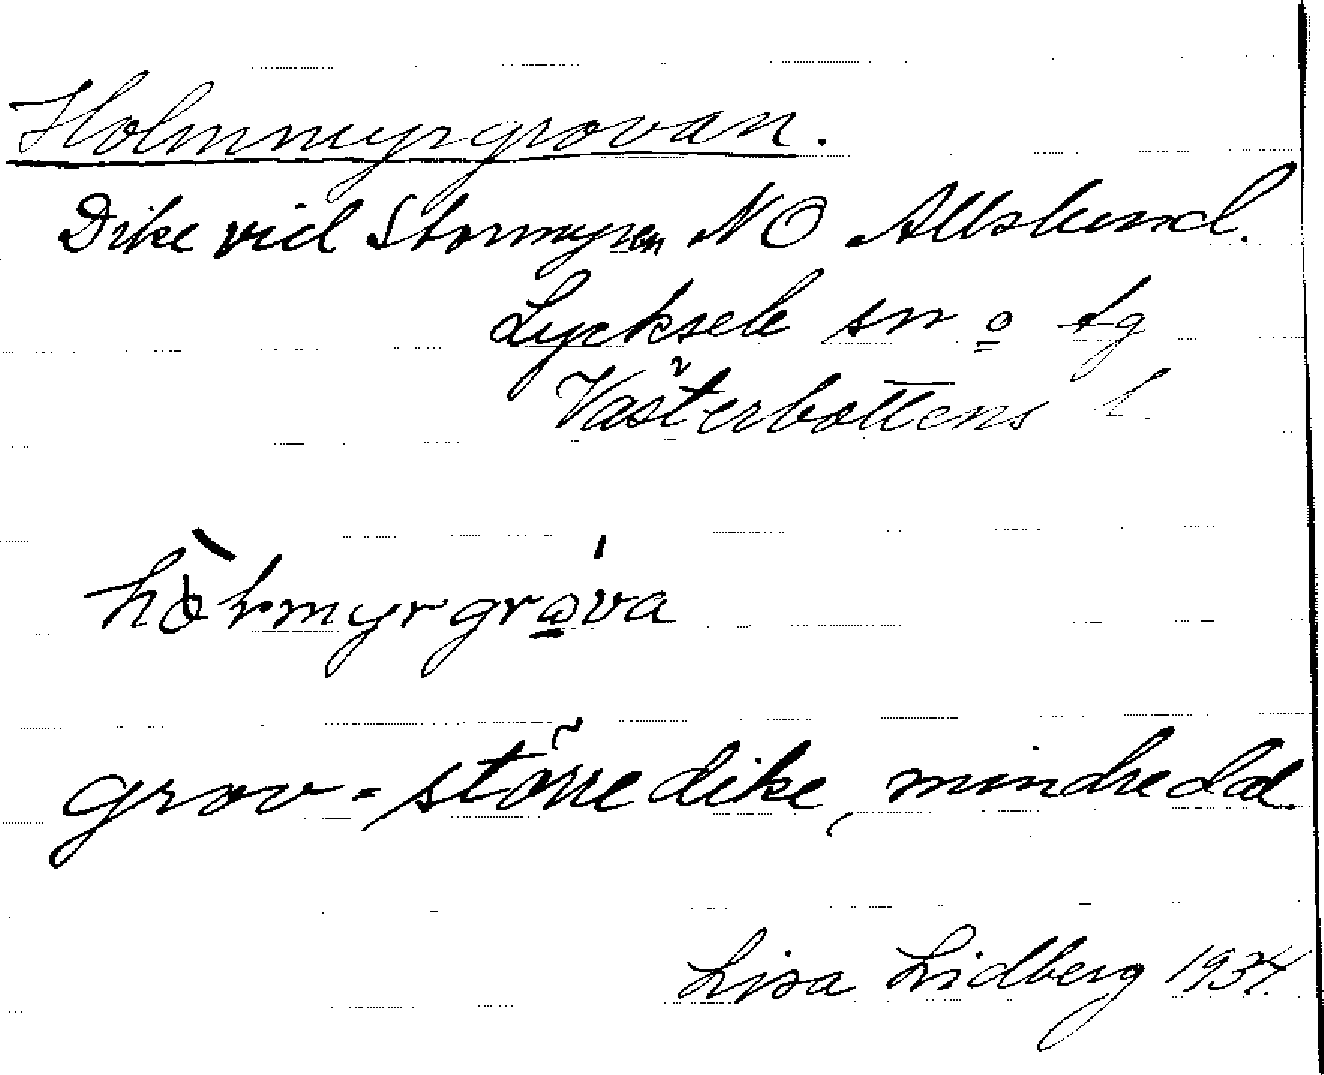 Holmmyrgrovan.
Dike vid Stormyren NO Allslund.
Lycksele sn o tg
Västerbottens l.
hòlmyrgrova
grov = större dike, mindre dal.
Lisa Lidberg 1934.